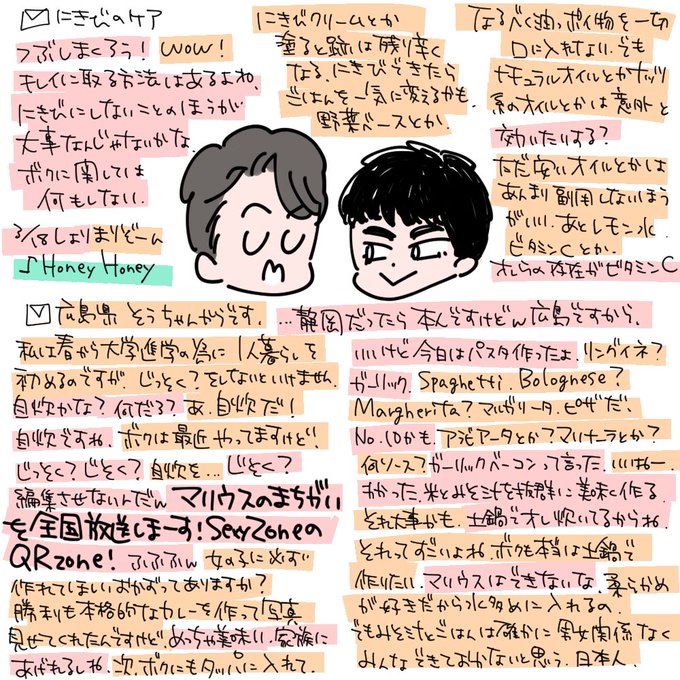 にきびのケア
つぶしまくろう! wow!
キレイに取る方法はあるよね、
にきびにしないことのほうが
大事なんじゃないかな、
ボクに関しては
何もしない.
にきびクリームとか
塗ると跡は残り辛く
なる.にきびできたら
ごはんを一気に変えるかも.
野菜ベースとか.
なるべく油っポイ物を一切
口に入れない.でも
ナチュラルオイルとかナッツ
系のオイルとかは意外と
効いたりする?
ただ安いオイルとかは
あんまり副用しないほう
がいい.あとレモン水.
ビタミンCとか.
オレらの存在がビタミンC
3/18しょりまりぞーん
♪Honey Honey
広島県 そうちゃんからです.
…静岡だったら本人ですけどw広島ですから.
私は春から大学進学の為に1人暮らしを
初めるのですが.じっそく?をしないといけません.
自炊かな?何だろ?あ.自炊だ!
自炊ですね.ボクは最近やってますけど!
じっそく?じそく?自炊を…じそく?
編集させないんだんマリウスのまちがい
を全国放送しまーす!SexyZoneの
QRzone!ふふふw 女の子に必ず
作れてほしいおかずってありますか?
勝利も本格的なカレーを作って写真
見せてくれたんですけど.めっちゃ美味い.家族に
あげれるしね.次.ボクにもタッパに入れて.
いいけど今日はパスタ作ったよ.リングイネ?
ガーリック.Spaghetti.Bolognese?
Margherita?マルガリータ.ピザだ.
No.(Dかも.アラビアータとか?マリナーラとか?
何ソース?ガーリックベーコンって言った.いいねー.
わかった.米とみそ汁を抜群に美味く作る.
それ大事かも.土鍋でオレ炊いてるからね.
それってすごいよね.ボクも本当は土鍋で
作りたい.マリウスはできないな.柔らかめ
が好きだから水多めに入れるの.
でもみそ汁とごはんは確かに男女関係なく
みんなできておかないと思う.日本人.